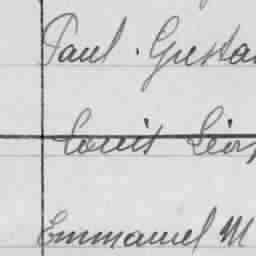 Paul. Gusta
Louis Léo
Emmanuel M